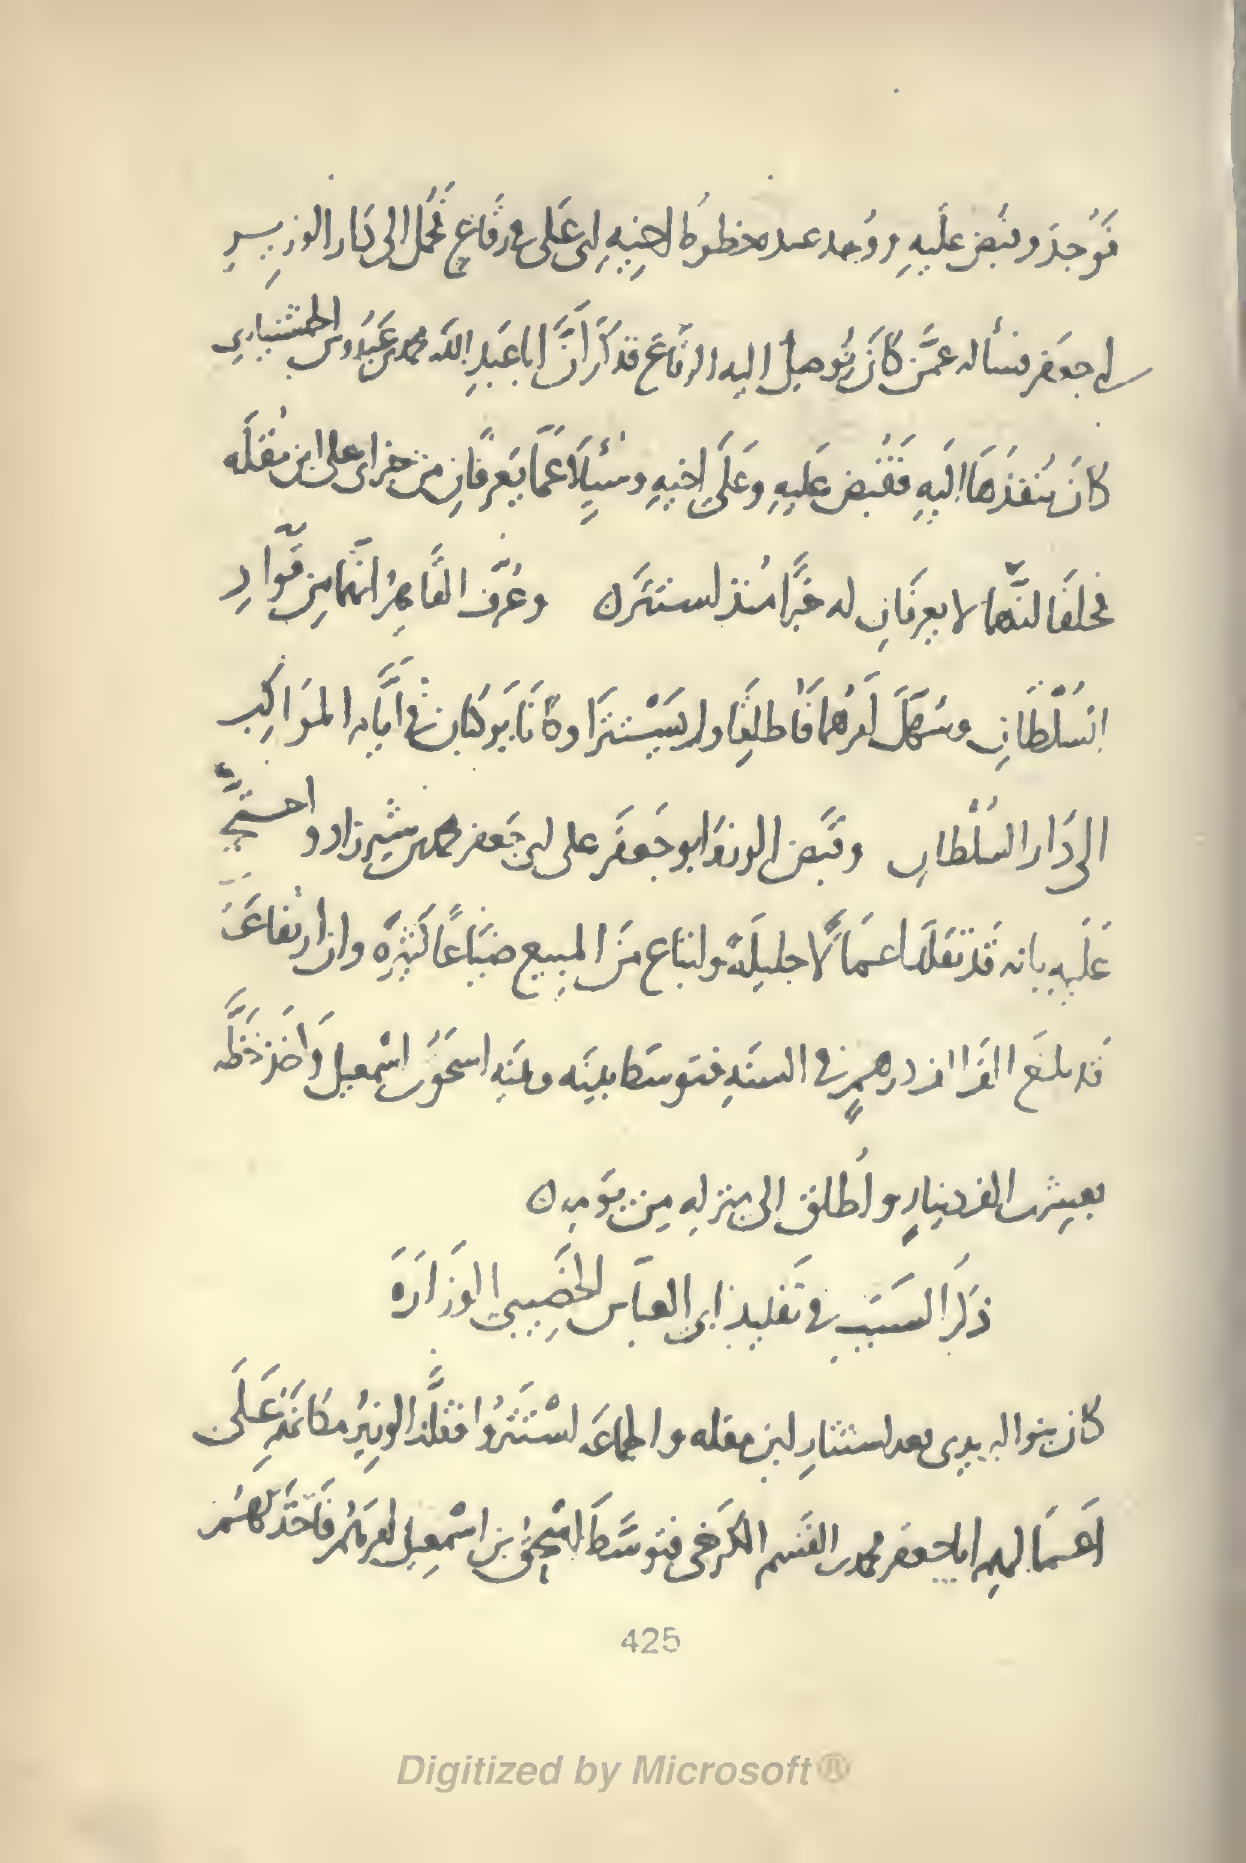 فوجد وقبض عليه ووجد عنده خطوطا لاخيه ابى على فى رقاع فحمل الى دار الوزير
ابى جعفر فسأله عمن كان يوصل اليه الرقاع فذكر أن ابا عبد الله محمد بن عبدوس الجهشيارى
كان ينفذها اليه فقبض عليه وعلى اخيه وسئلا عما يعرفان من خبر ابى على ابن مقله
فحلفا انهما لا يعرفان له خبرا منذ استتر ٥ وعرف القاهر انهما من قواد
السلطان وسهل امرهما فاطلقا ولم يستترا وكانا يركبان فى أيام المواكب
الى دار السلطان وقبض الوزير ابو جعفر على ابى جعفر محمد بن شيرزاد واحتج
عليه بانه قد تقلد اعمالا جليلة وابتاع من المبيع ضياعا كثيره وان ارتفاعه
قد بلغ الف الف درهم فى السنه فتوسط بينه وبينه اسحق بن اسمعيل واخذ خطه
بعشرين الف دينار واطلق الى منزله من يومه ٥
ذكر السبب فى تقليد ابى العباس الخصيبى الوزارة
كان بنو البريدى بعد استتار ابن مقله والجماعه استتروا فقلد الوزير مكانهم على
اعمالهم ابا جعفر محمد بن القسم الكرخى فتوسط اسحق بن اسمعيل امرهم فأخذ لهم
425
Digitized by Microsoft®